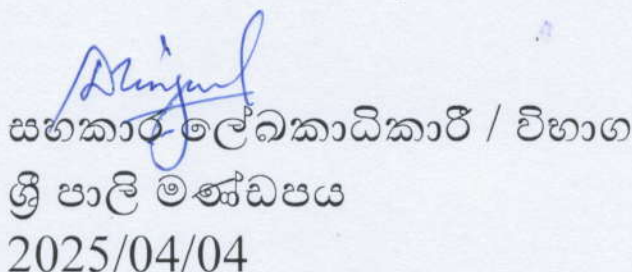 සහකාර ලේඛකාධිකාරී / විභාග
ශ්‍රී පාලි මණ්ඩපය
2025/04/04